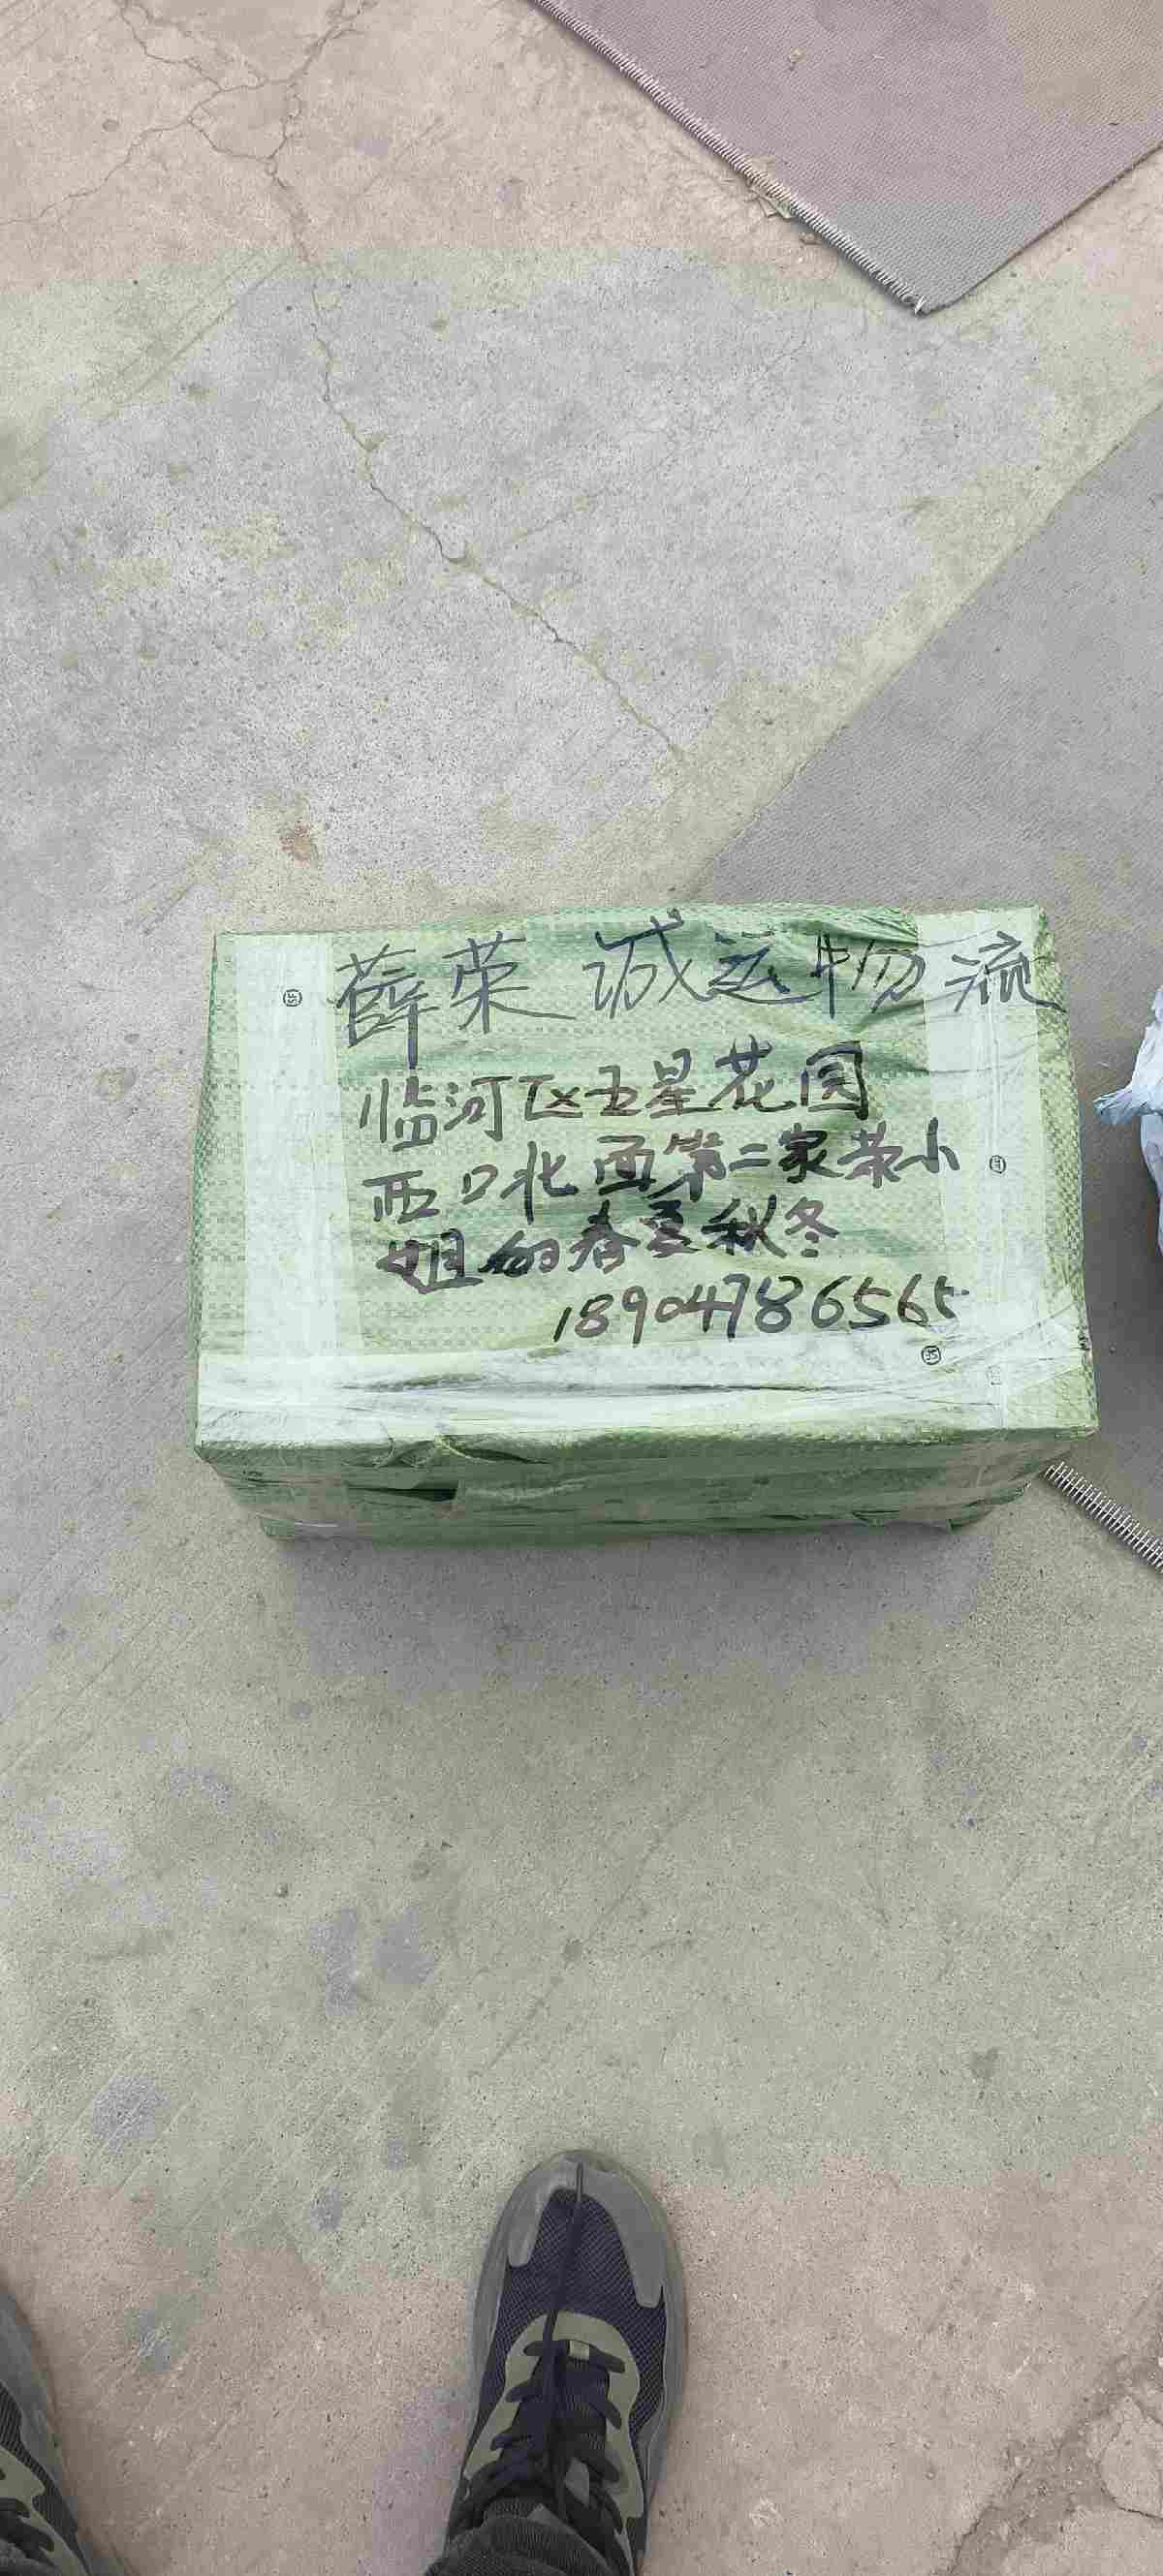 薛荣 诚运物流
临河区五星花园
西口北面第二家荣小
姐的春夏秋冬
18904786565